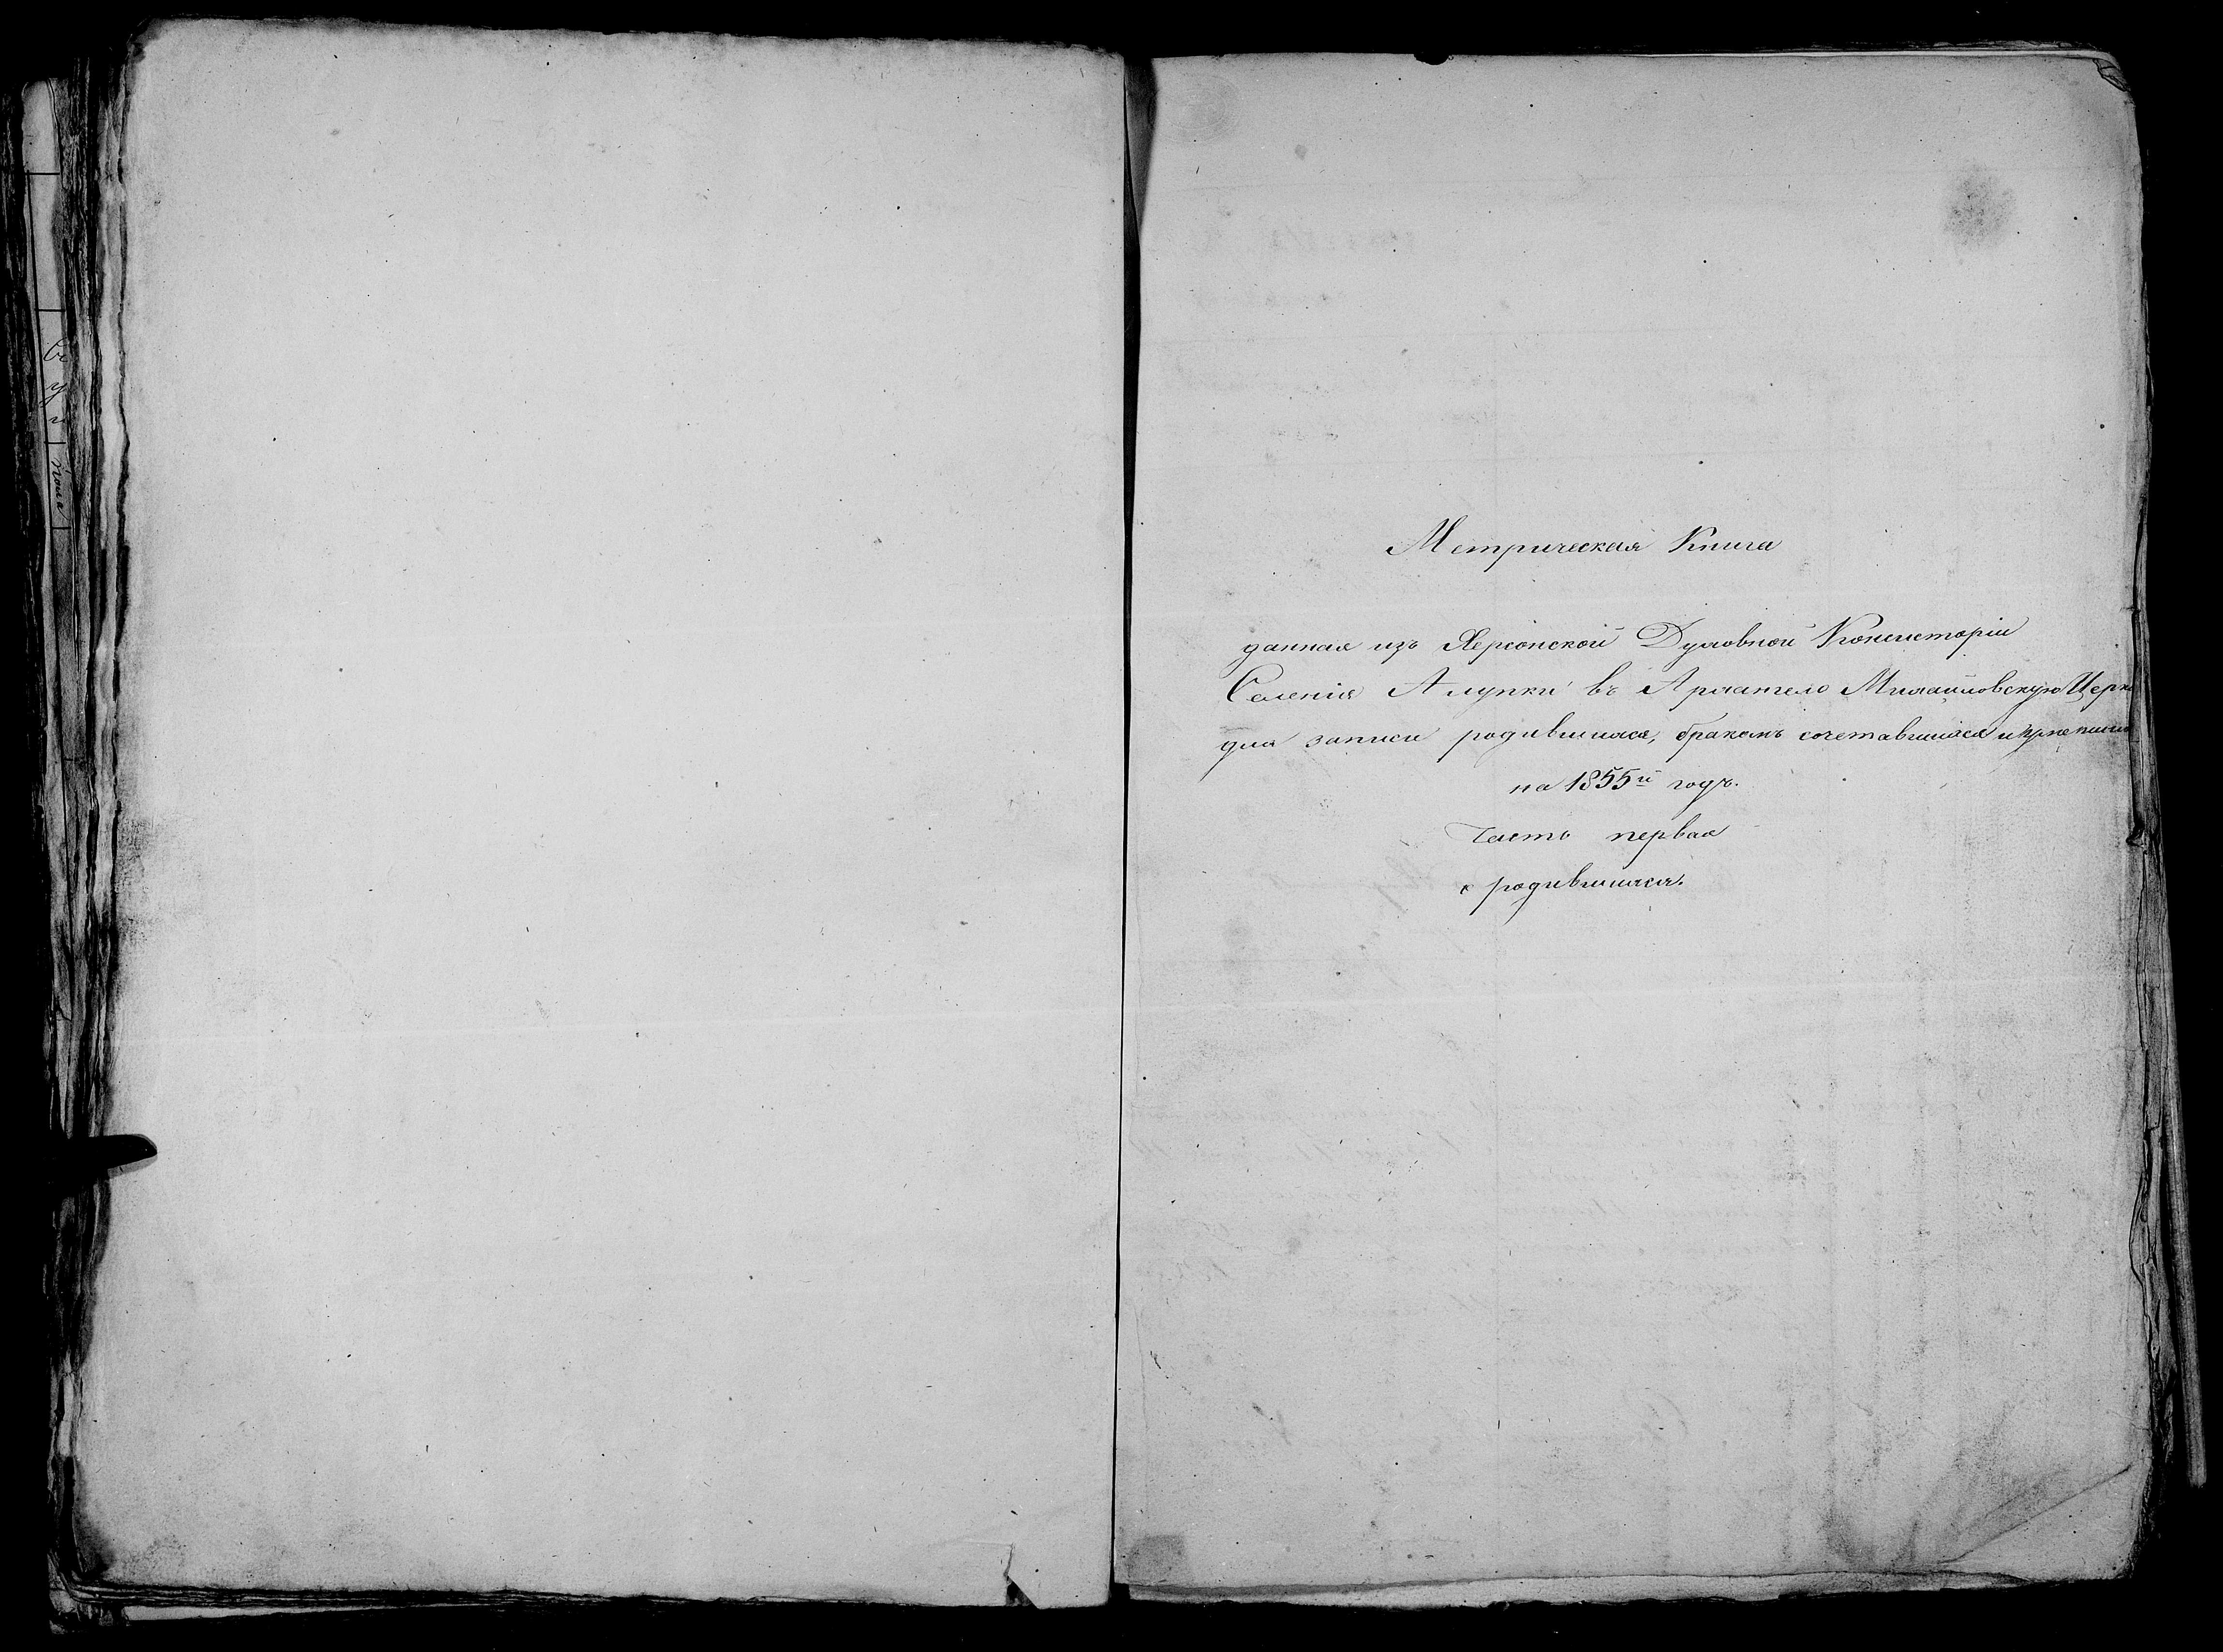 пома
Метрическая Книга
данная изъ Херсонской Духовной Консисторіи
Селенія Алупки въ Архангело Михайловскую Церк
для записи родившихся, бракомъ сочетавшихся и
на 1855й годъ.
Часть первая
о родившихся.